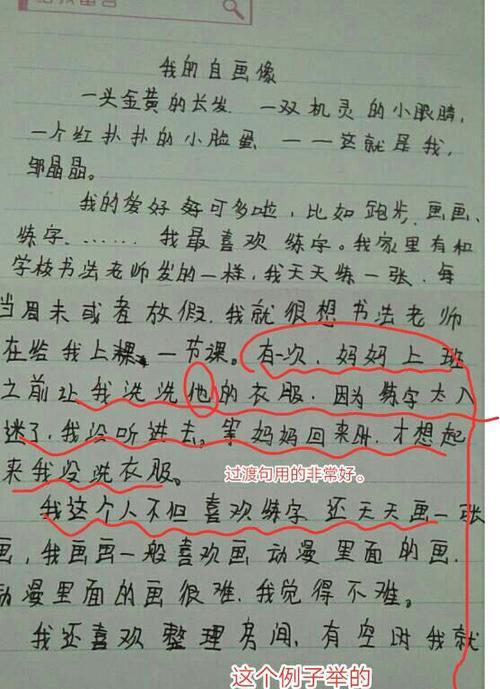 我的自画像
一头金黄的长发 一双机灵的小眼睛,
一个红扑扑的小脸蛋 ——这就是我,
邹晶晶。
我的爱好 可多啦,比如跑步、画画、
练字……我最喜欢练字。我家里有和
学校书法老师发的一样,我天天练一张,每
当周末或者放假,我就很想书法老师
在给我上 一节课。有一次,妈妈上班
之前让我洗洗他的衣服,因为练字太入
迷了,我没听进去。等妈妈回来时,才想起
来我没洗衣服。
过渡句用的非常好。
我这个人不但喜欢练字 还天天画一张
画,我画画一般喜欢画动漫里面的画.
动漫里面的画很难,我觉得不难。
我还喜欢整理房间,有空时我就
这个例子举的